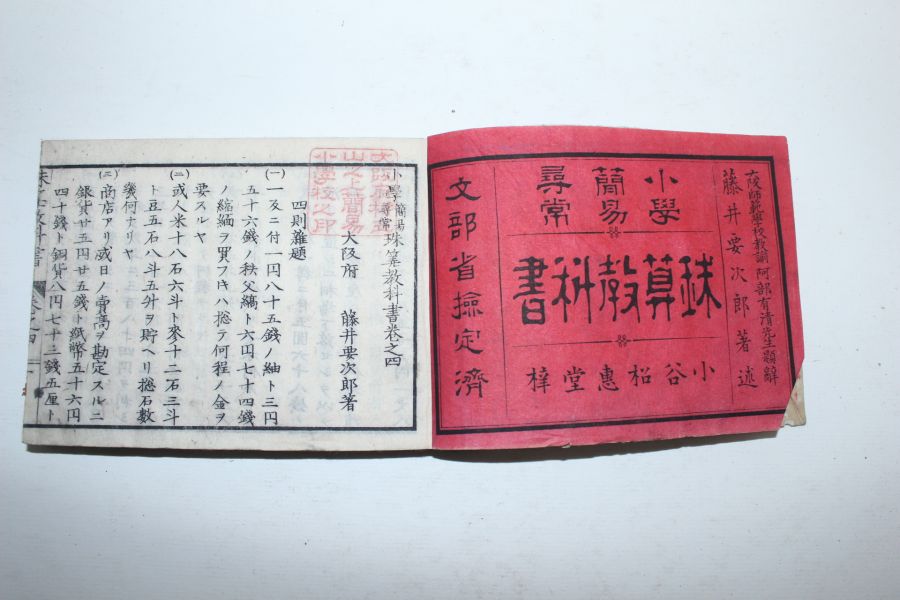 大阪師範學校教諭 阿部有清先生題辭
藤井要次郎著述
小學
簡易
尋常
珠算教科書
小谷松惠堂梓
文部省撿定濟
小學簡易尋常珠算教科書卷之四
大阪府 藤井要次郎著
四則雜題
(一)一反ニ付一円八十五錢ノ紬ト三円
五十六錢ノ秩父縞ト六円七十四錢
ノ縮緬ヲ買フトキハ捴テ何程ノ金ヲ
要スルヤ
(二)或人米十八石六斗ト麥十二石三斗
ト豆五石八斗五升ヲ貯ヘリ捴石數
幾何ナリヤ
(三)商店アリ或日ノ賣高ヲ勘定スルニ
銀貨廿五円廿五錢ト紙幣五十六円
四十錢ト銅貨八円七十三錢五厘ト